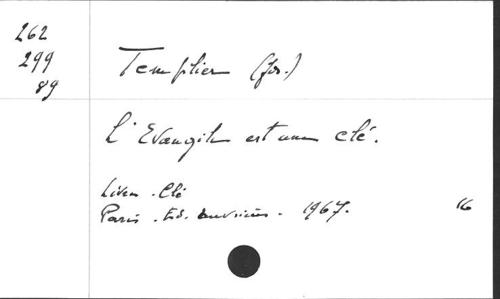 262
299
89
Templier (Jos.)
L'Evangile est une clé.
Livre - Clé
Paris. Ed. ouvrières. 1967. 16